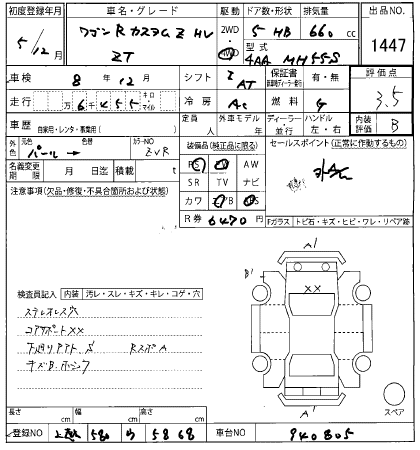 初度登録年月 車名・グレード 駆動 ドア数・形状 排気量 出品NO.
5/12月 ワゴンR カスタム Z HV 2WD 5 HB 660 cc
ZT 4WD 型式 4AA MH55S 1447
車検 8年12月 シフト AT 保証書 有・無 評価点
走行 万6千455 キロ・マイル 冷房 AC 燃料 G 3.5
車歴 自家用・レンタ・事業用( ) 定員 人 外車モデル 年 ディーラー・並行 ハンドル 左・右 内装評価 B
外色 元色 パール 色替 カラーNO ZVR 装備品(純正品に限る) セールスポイント(正常に作動するもの)
名義変更期限 月 日 積載 PS AW
注意事項(欠品・修復・不具合箇所および状態) SR TV ナビ
カワ
R券 6470円
Fガラス トビ石・キズ・ヒビ・ワレ・リペア跡
A'
B'
XX
検査員記入 内装 汚レ・スレ・キズ・キレ・コゲ・穴
ステレオレス穴
コアサポートXX
下廻り S RスポA
キズB
A'
スペア
長さ cm 幅 cm 高さ cm
登録NO 580 5868 車台NO 940805